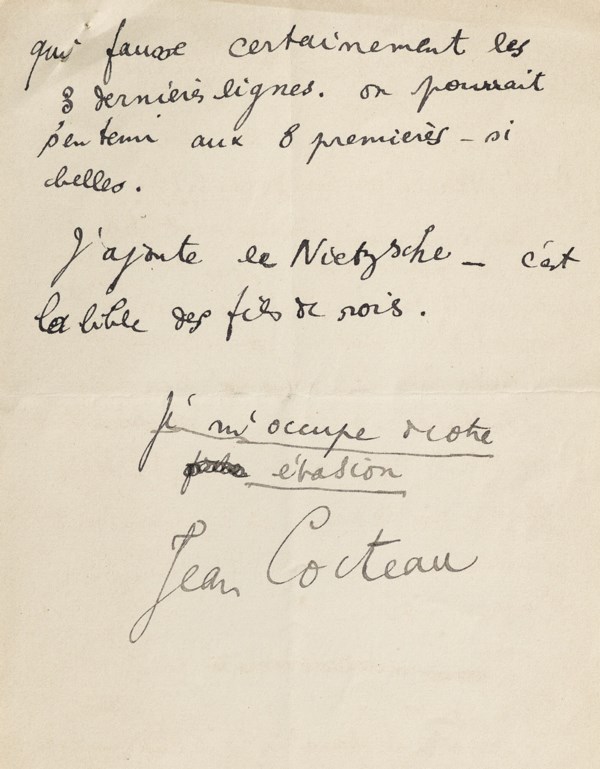 qui fausse certainement les
3 dernières lignes. on pourrait
s'en tenir aux 8 premières – si
belles.
J'ajoute le Nietzsche – c'est
la bible des fils de rois.
Je m'occupe de votre
évasion
Jean Cocteau